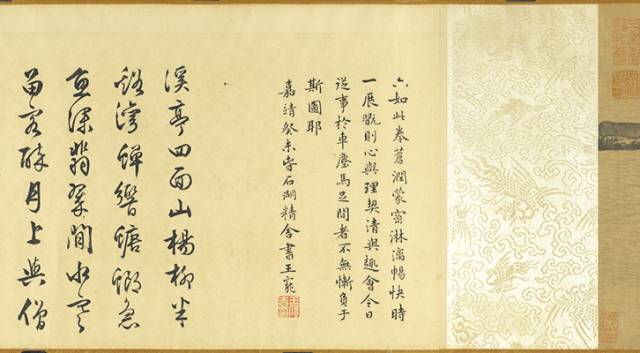 六如此卷蒼潤蒙密淋漓暢快時
一展翫則心與理契清與趣會今日
從事於車塵馬足間者不無慚負于
斯圖耶
嘉靖癸未石湖精舍書王寵
溪亭四面山楊柳半
谿灣蟬響螗蜋急
魚深翡翠閒水寒
留客醉月上與僧